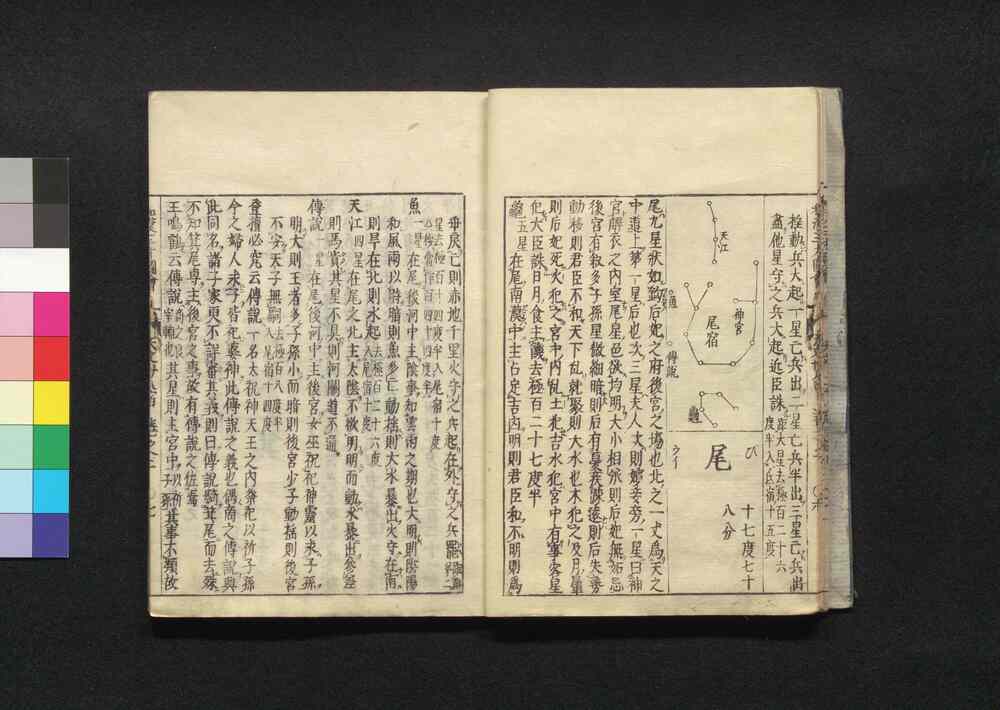 搖動兵大起一星亡兵出二星亡兵半出三星亡兵出
盡他星守之兵大起近臣誅
距大星去極百二十六
度半入氐宿十五度
天江
神宮
尾宿
魚
傅說
龜
尾
び
十七度七十
八分
尾九星狀如鉤后妃之府後宮之場也北之一丈爲天之
中道上第一星后也次三星夫人次則嬪妾旁一星曰神
宮解衣之內室尾星色欲均明大小相承則后妃無妬忌
後宮有敘多子孫星微細暗則后有憂疾疎遠則后失勢
動搖則君臣不和天下亂就聚則大水也木犯之及月暈
則后妃死火犯之宮中內亂土犯吉水犯宮中有事客星
犯大臣誅日月食主饑去極百二十七度半
龜五星在尾南漢中主占定吉凶明則君臣和不明則爲
乖戾亡則赤地千里火守之兵起在外守之兵罷
魚一星在尾後河中主陰事知雲雨之期也大明則陰陽
和風雨以時暗則魚多亡動搖則大水暴出火守在南
則旱在北則水起去極百二十六度
天江四星在尾之北主太陰不欲明明而動水暴出參差
則馬貴其星不具則河關道不通
傅說一星在尾後河中主後宮女巫祝祀神靈以求子孫
明大則王者多子孫小而暗則後宮少子動搖則後宮
不安天子無嗣去極百八度半
登壇必究云傅說一名太祝神天王之內祭祀以祈子孫
今之婦人求子皆祀婆神此傅說之義也偶商之傅說與
此同名諸子家更不詳審其義則曰傅說騎箕尾而去殊
不知箕尾專主後宮之事故有傅說之佐焉
王鳴鶴云傅說商之良宰輔也其星則主宮中子孫以祈其事不類故